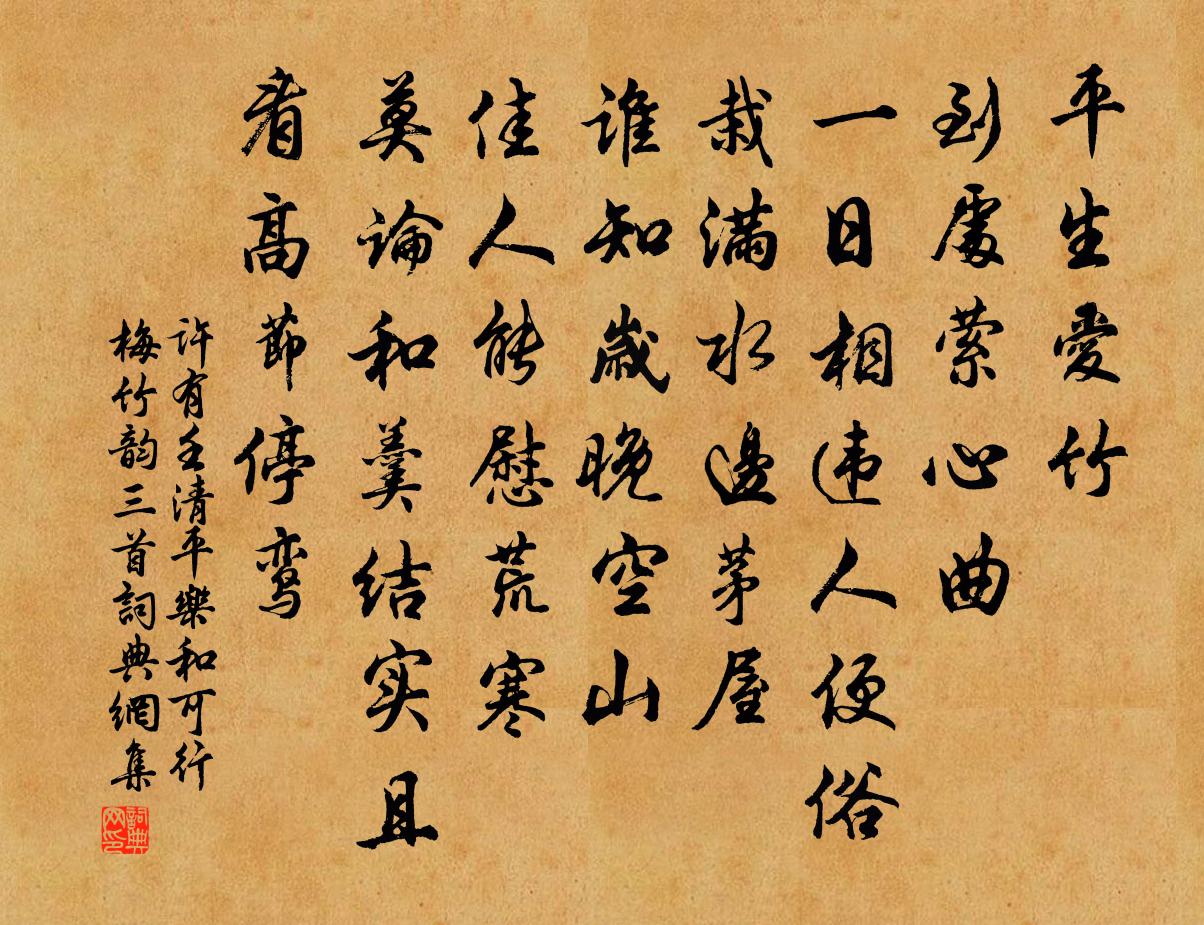 平生愛竹
到處縈心曲
一日相违人便俗
栽滿水邊茅屋
谁知歲晚空山
佳人能慰荒寒
莫論和羹结实且
看高節停鸾
许有壬清平樂和可行
梅竹韵三首詞典網集
詞典网印